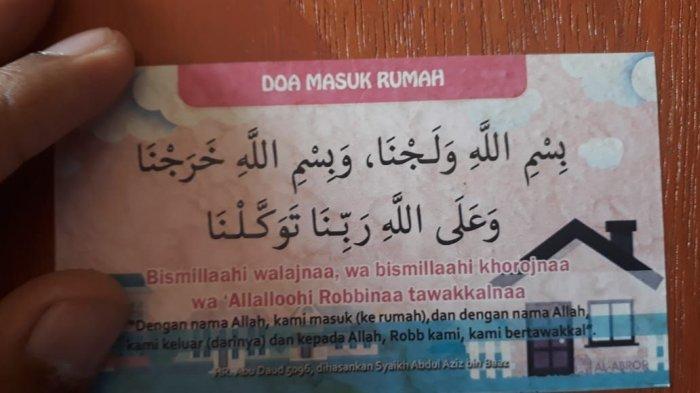 DOA MASUK RUMAH
بِسْمِ اللَّهِ وَلَجْنَا، وَبِسْمِ اللَّهِ خَرَجْنَا
وَعَلَى اللَّهِ رَبِّنَا تَوَكَّلْنَا
Bismillaahi walajnaa, wa bismillaahi khorojnaa
wa 'Allalloohi Robbinaa tawakkalnaa
"Dengan nama Allah, kami masuk (ke rumah),dan dengan nama Allah,
kami keluar (darinya) dan kepada Allah, Robb kami, kami bertawakkal".
HR. Abu Daud 5096, dihasankan Syaikh Abdul Aziz bin Baaz
AL-ABROR